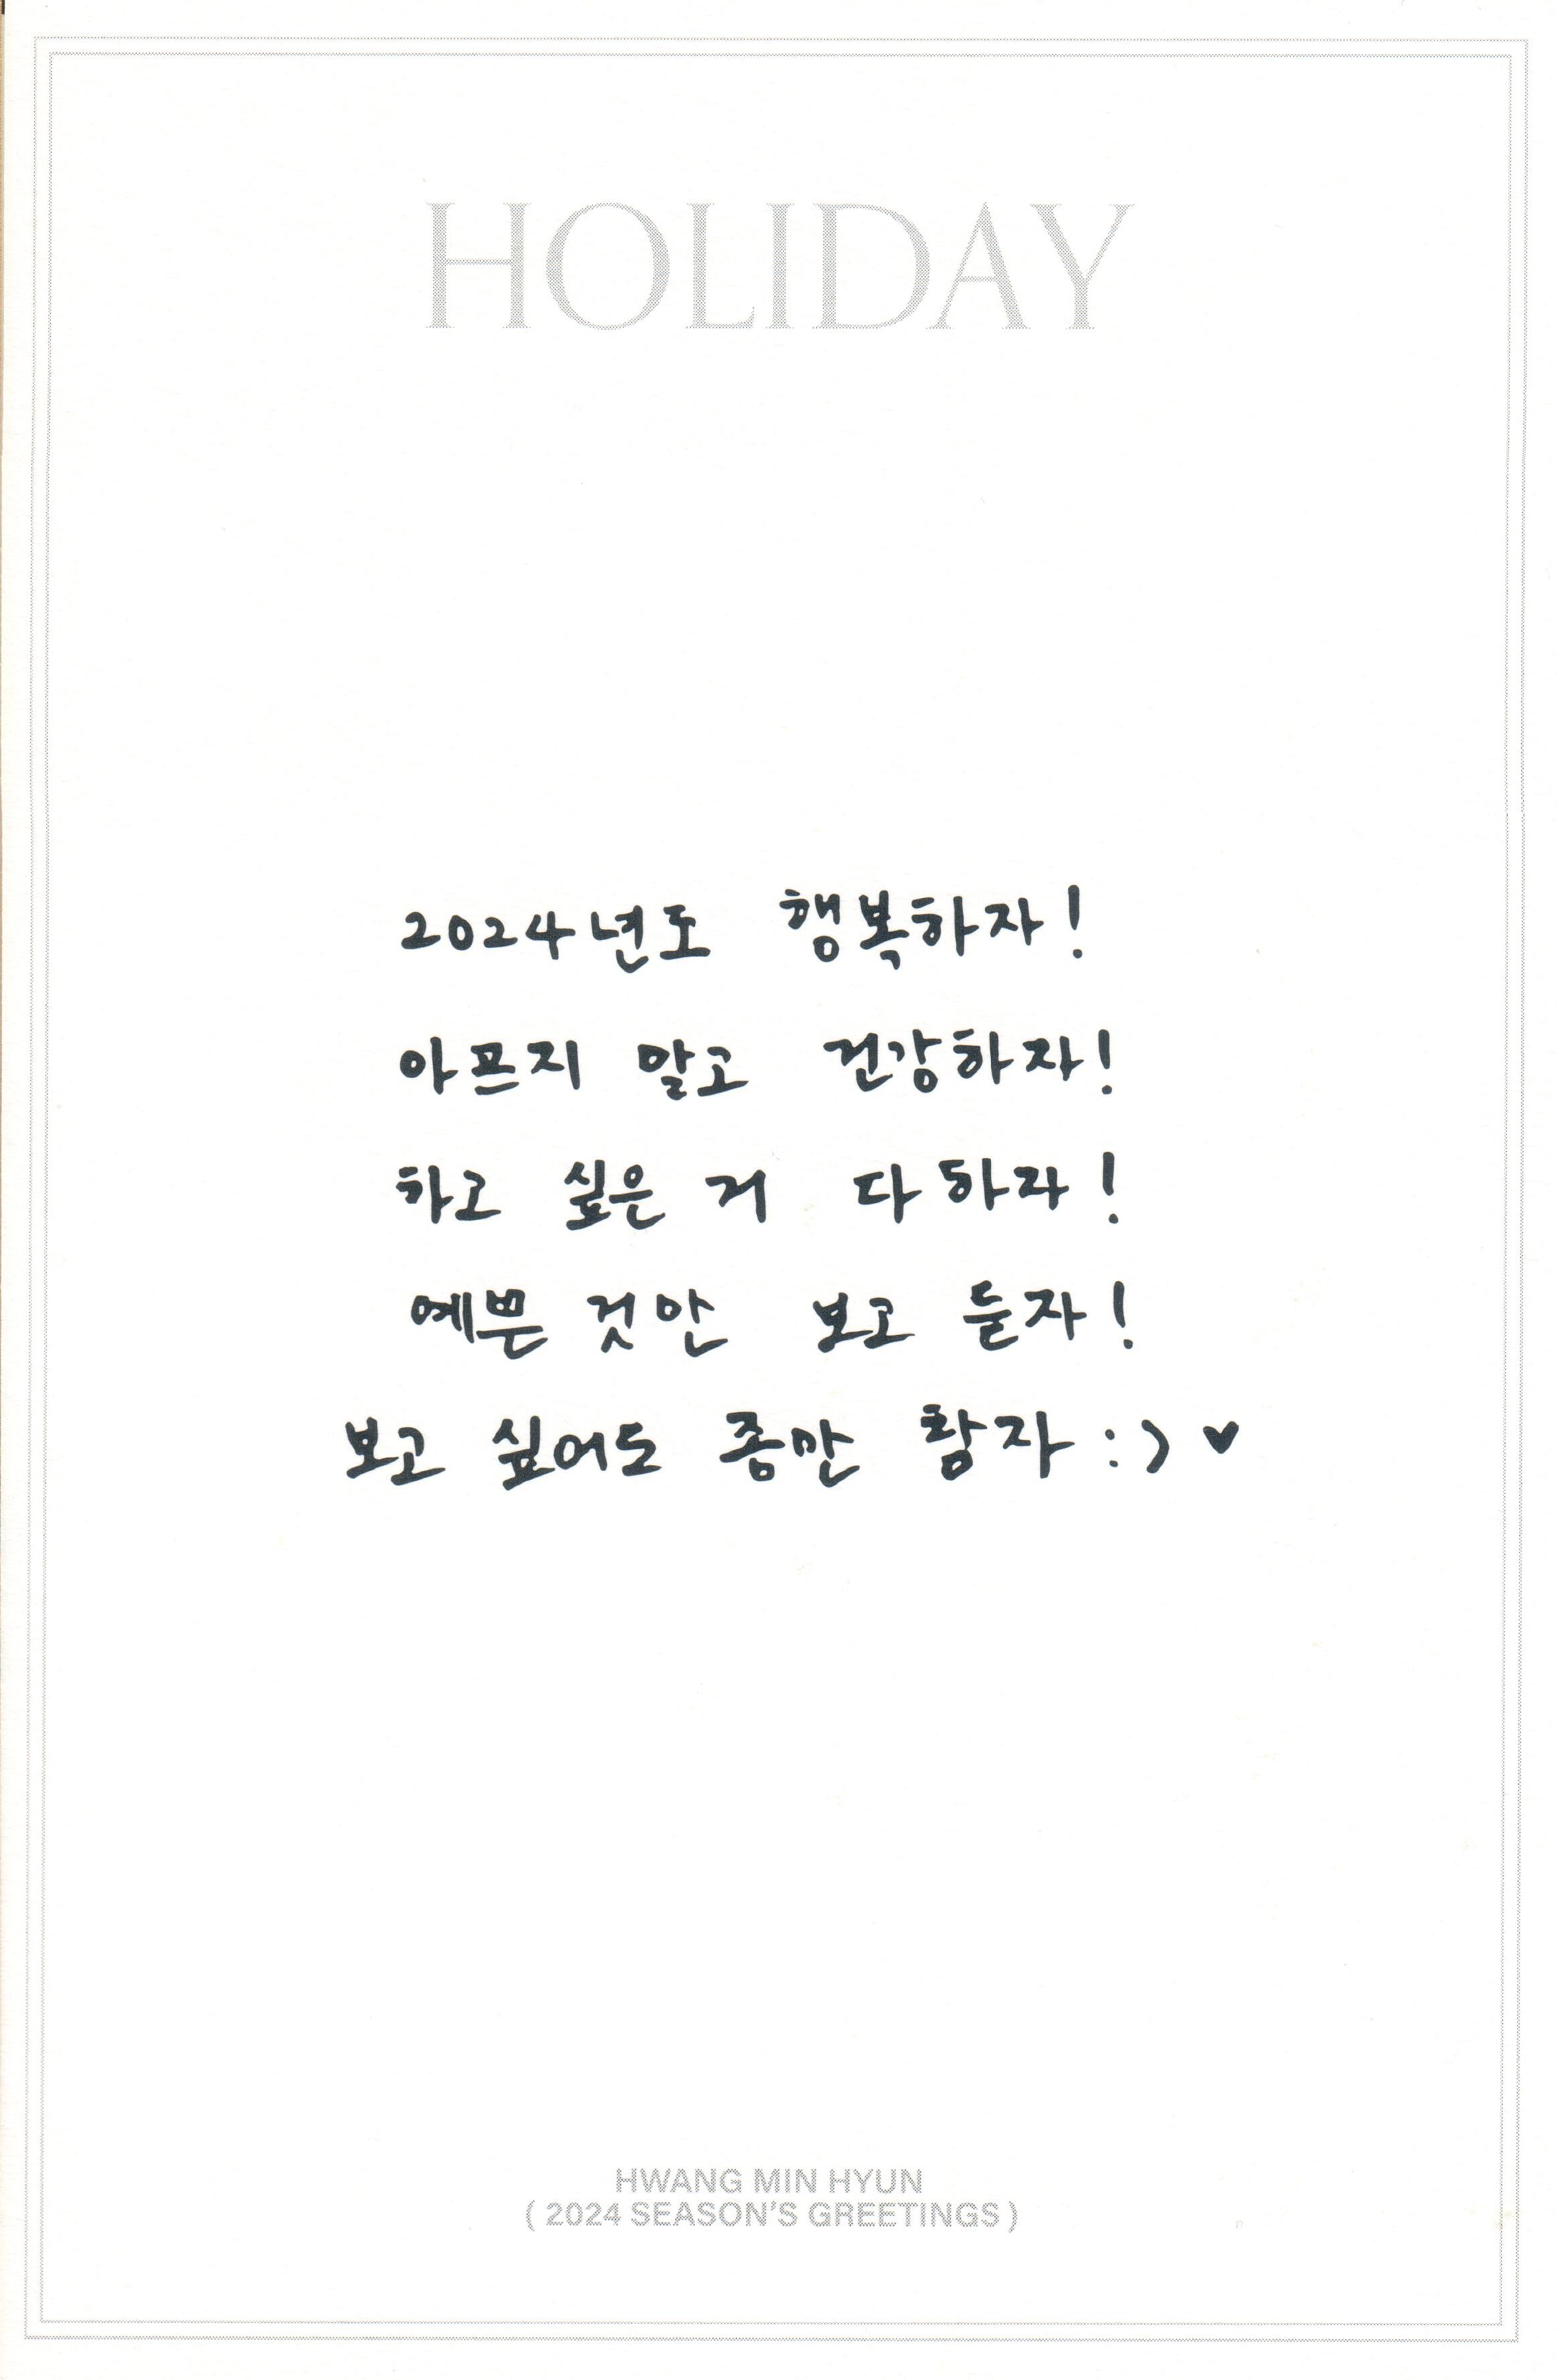 HOLIDAY
2024년도 행복하자!
아프지 말고 건강하자!
하고 싶은 거 다 하자!
예쁜 것만 보고 듣자!
보고 싶어도 좀만 참자 :) ♥
HWANG MIN HYUN
( 2024 SEASON'S GREETINGS )